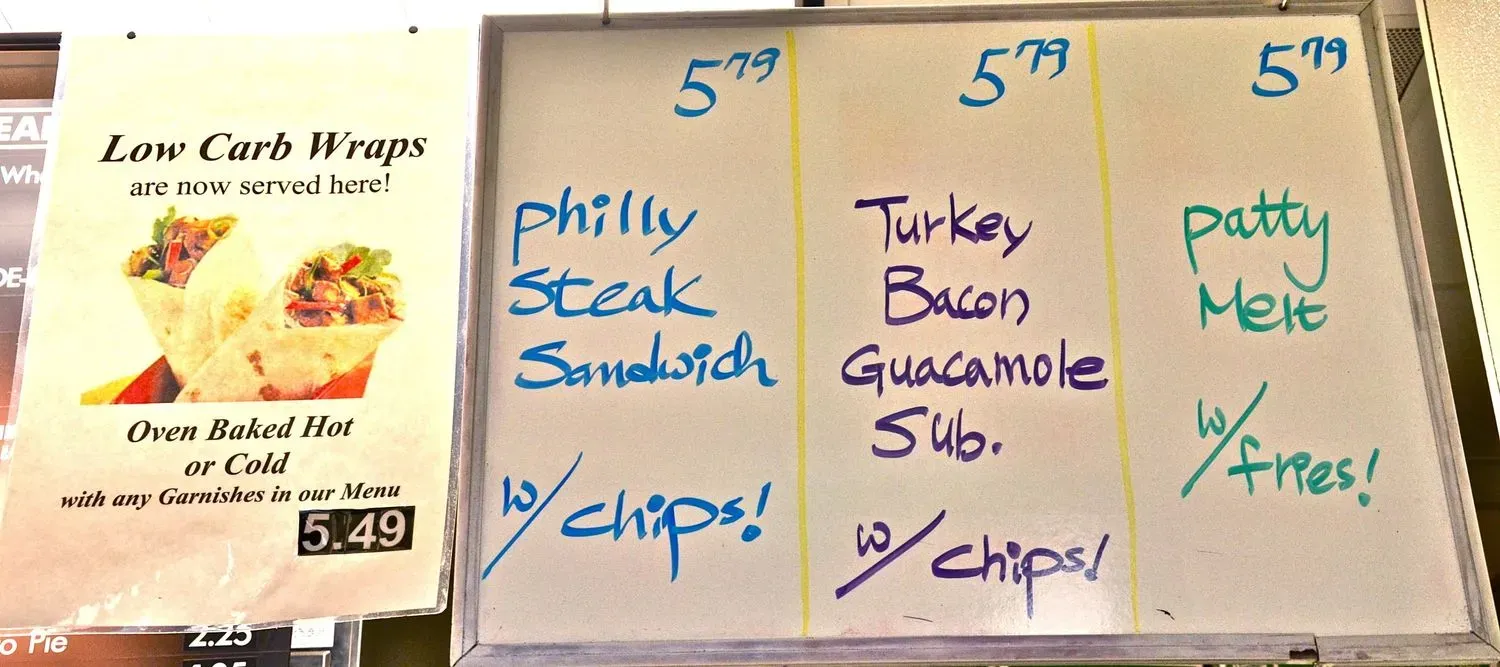 Low Carb Wraps
are now served here!
Oven Baked Hot
or Cold
with any Garnishes in our Menu
5.49
5.79
philly
Steak
Sandwich
w/ chips!
5.79
Turkey
Bacon
Guacamole
Sub.
w/ chips!
5.79
patty
Melt
w/ fries!
Pie
2.25